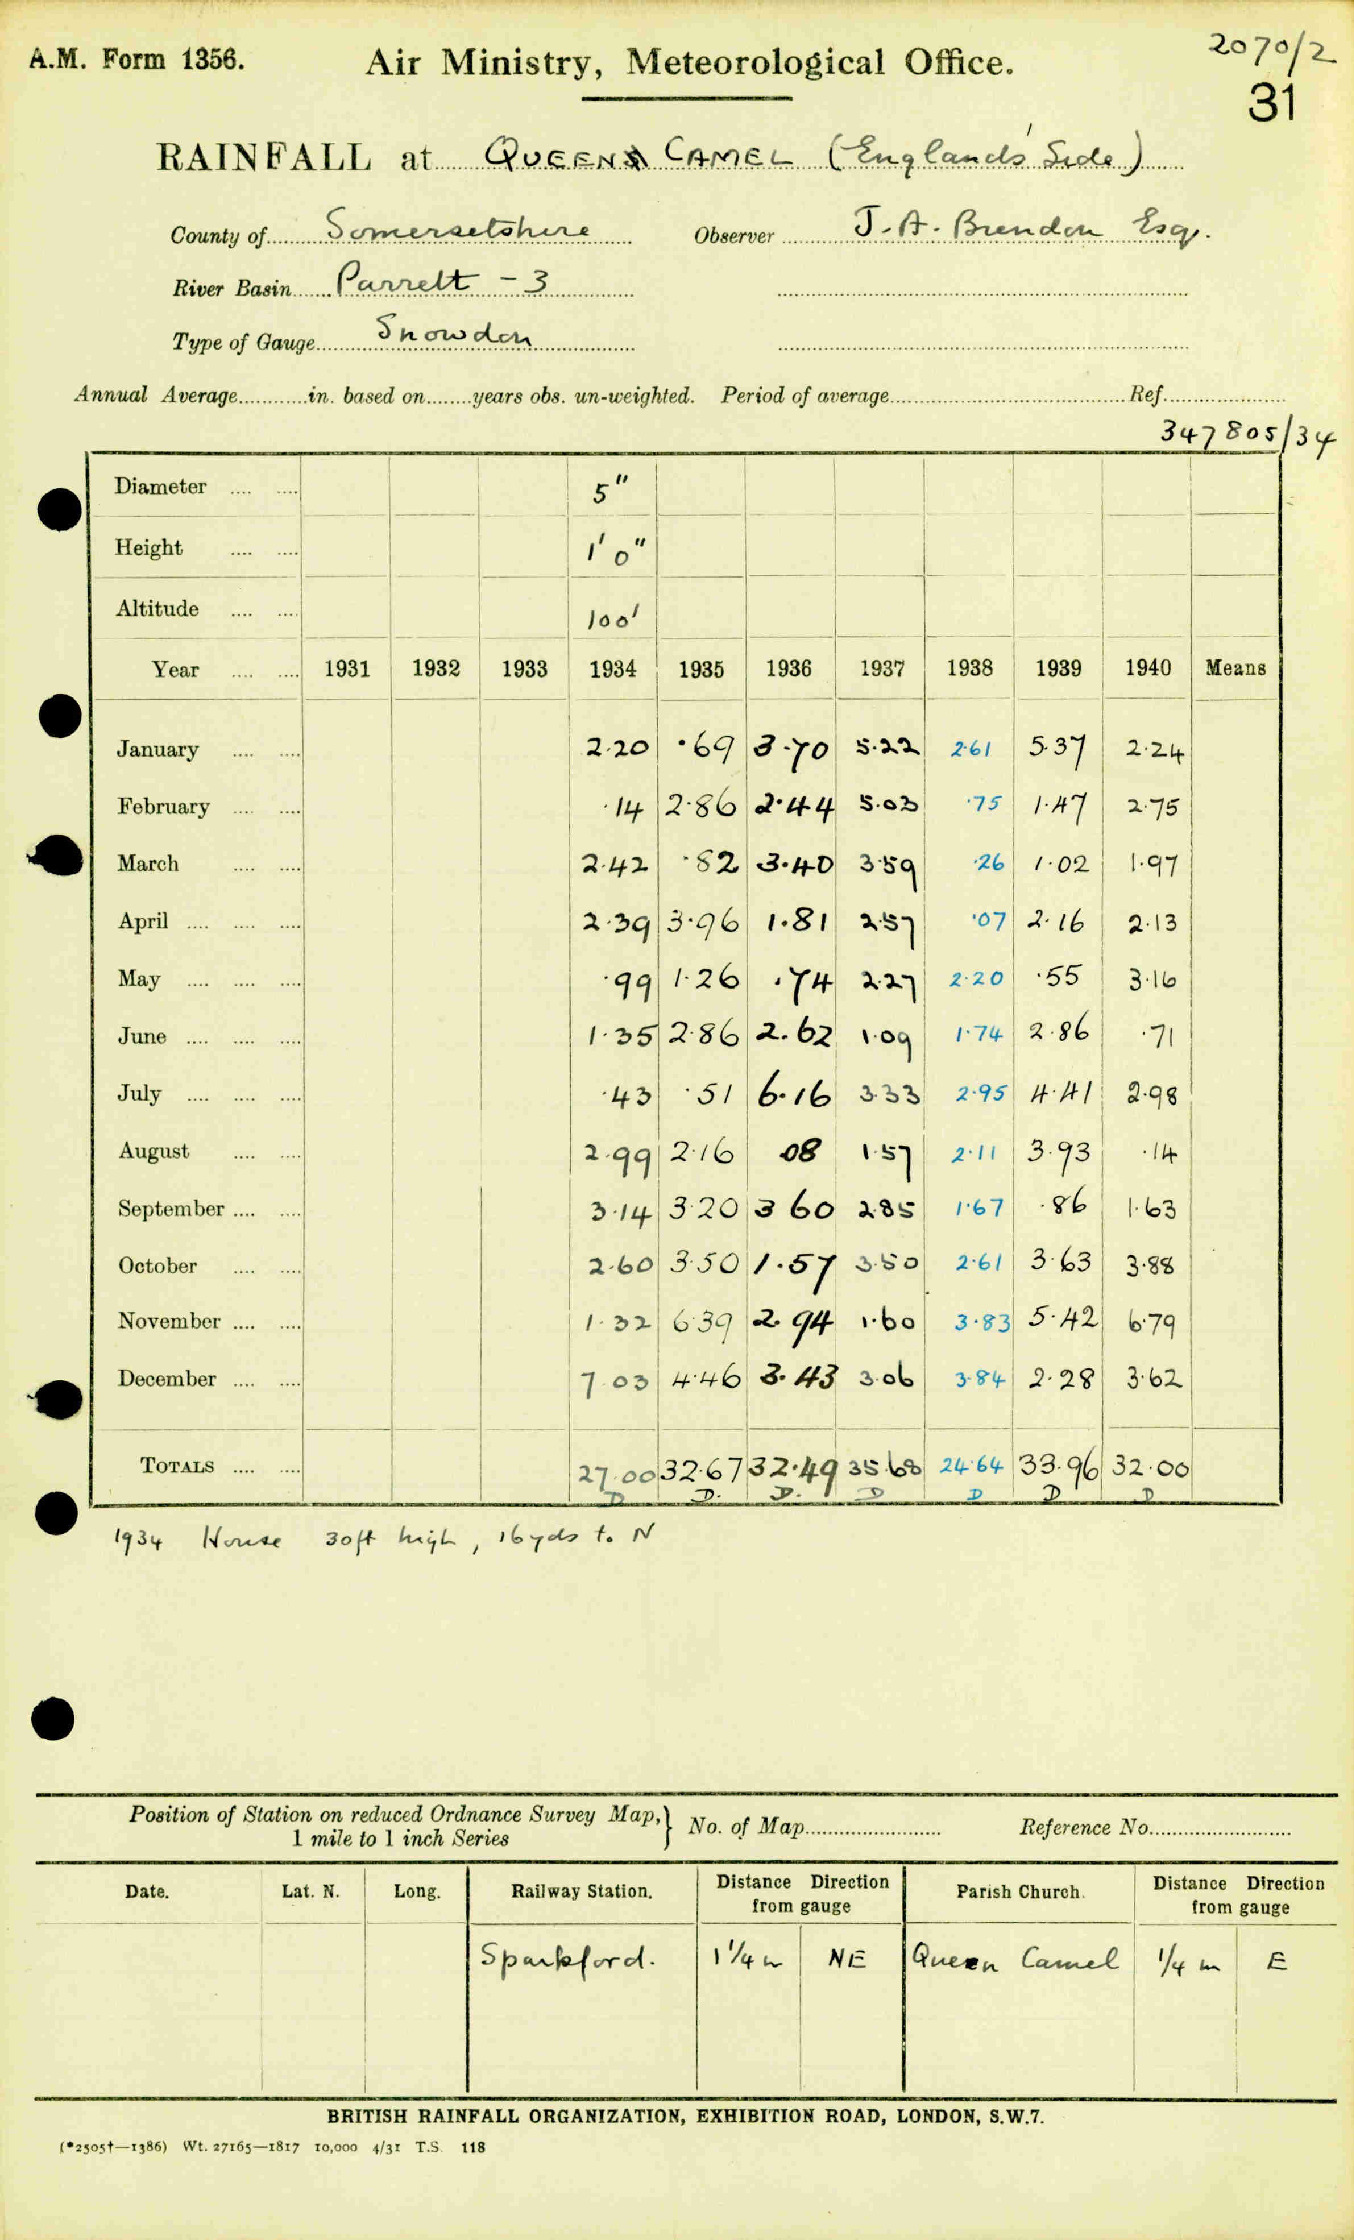 A.M. Form 1356.
Air Ministry, Meteorological Office.
2070/2
31
RAINFALL at QUEEN CAMEL (England's Side)
County of Somersetshire Observer J. A. Brendon Esq.
River Basin Parrett - 3
Type of Gauge Snowdon
Annual Average............in. based on........years obs. un-weighted. Period of average.................... Ref....................
347805/34
Diameter .... .... 5"
Height .... .... 1' 0"
Altitude .... .... 100'
Year .... .... 1931 1932 1933 1934 1935 1936 1937 1938 1939 1940 Means
January .... .... 2.20 .69 3.70 5.22 2.61 5.37 2.24
February .... .... .14 2.86 2.44 5.03 .75 1.47 2.75
March .... .... 2.42 .82 3.40 3.59 .26 1.02 1.97
April .... .... .... 2.39 3.96 1.81 2.57 .07 2.16 2.13
May .... .... .... .99 1.26 .74 2.27 2.20 .55 3.16
June .... .... .... 1.35 2.86 2.62 1.09 1.74 2.86 .71
July .... .... .... .43 .51 6.16 3.33 2.95 4.41 2.98
August .... .... 2.99 2.16 .08 1.57 2.11 3.93 .14
September .... .... 3.14 3.20 3 60 2.85 1.67 .86 1.63
October .... .... 2.60 3.50 1.57 3.50 2.61 3.63 3.88
November .... .... 1.32 6.39 2.94 1.60 3.83 5.42 6.79
December .... .... 7 03 4.46 3.43 3.06 3.84 2.28 3.62
TOTALS .... .... 27.00 32.67 32.49 35.68 24.64 33.96 32.00
D D. D. D D D D
1934 House 30ft high, 16yds to N
Position of Station on reduced Ordnance Survey Map,} No. of Map........................ Reference No.........................
1 mile to 1 inch Series
Date. Lat. N. Long. Railway Station. Distance Direction from gauge Parish Church. Distance Direction from gauge
Sparkford. 1 1/4 m NE Queen Camel 1/4 m E
BRITISH RAINFALL ORGANIZATION, EXHIBITION ROAD, LONDON, S.W.7.
(*2505†—1386) Wt. 27165—1817 10,000 4/31 T.S. 118